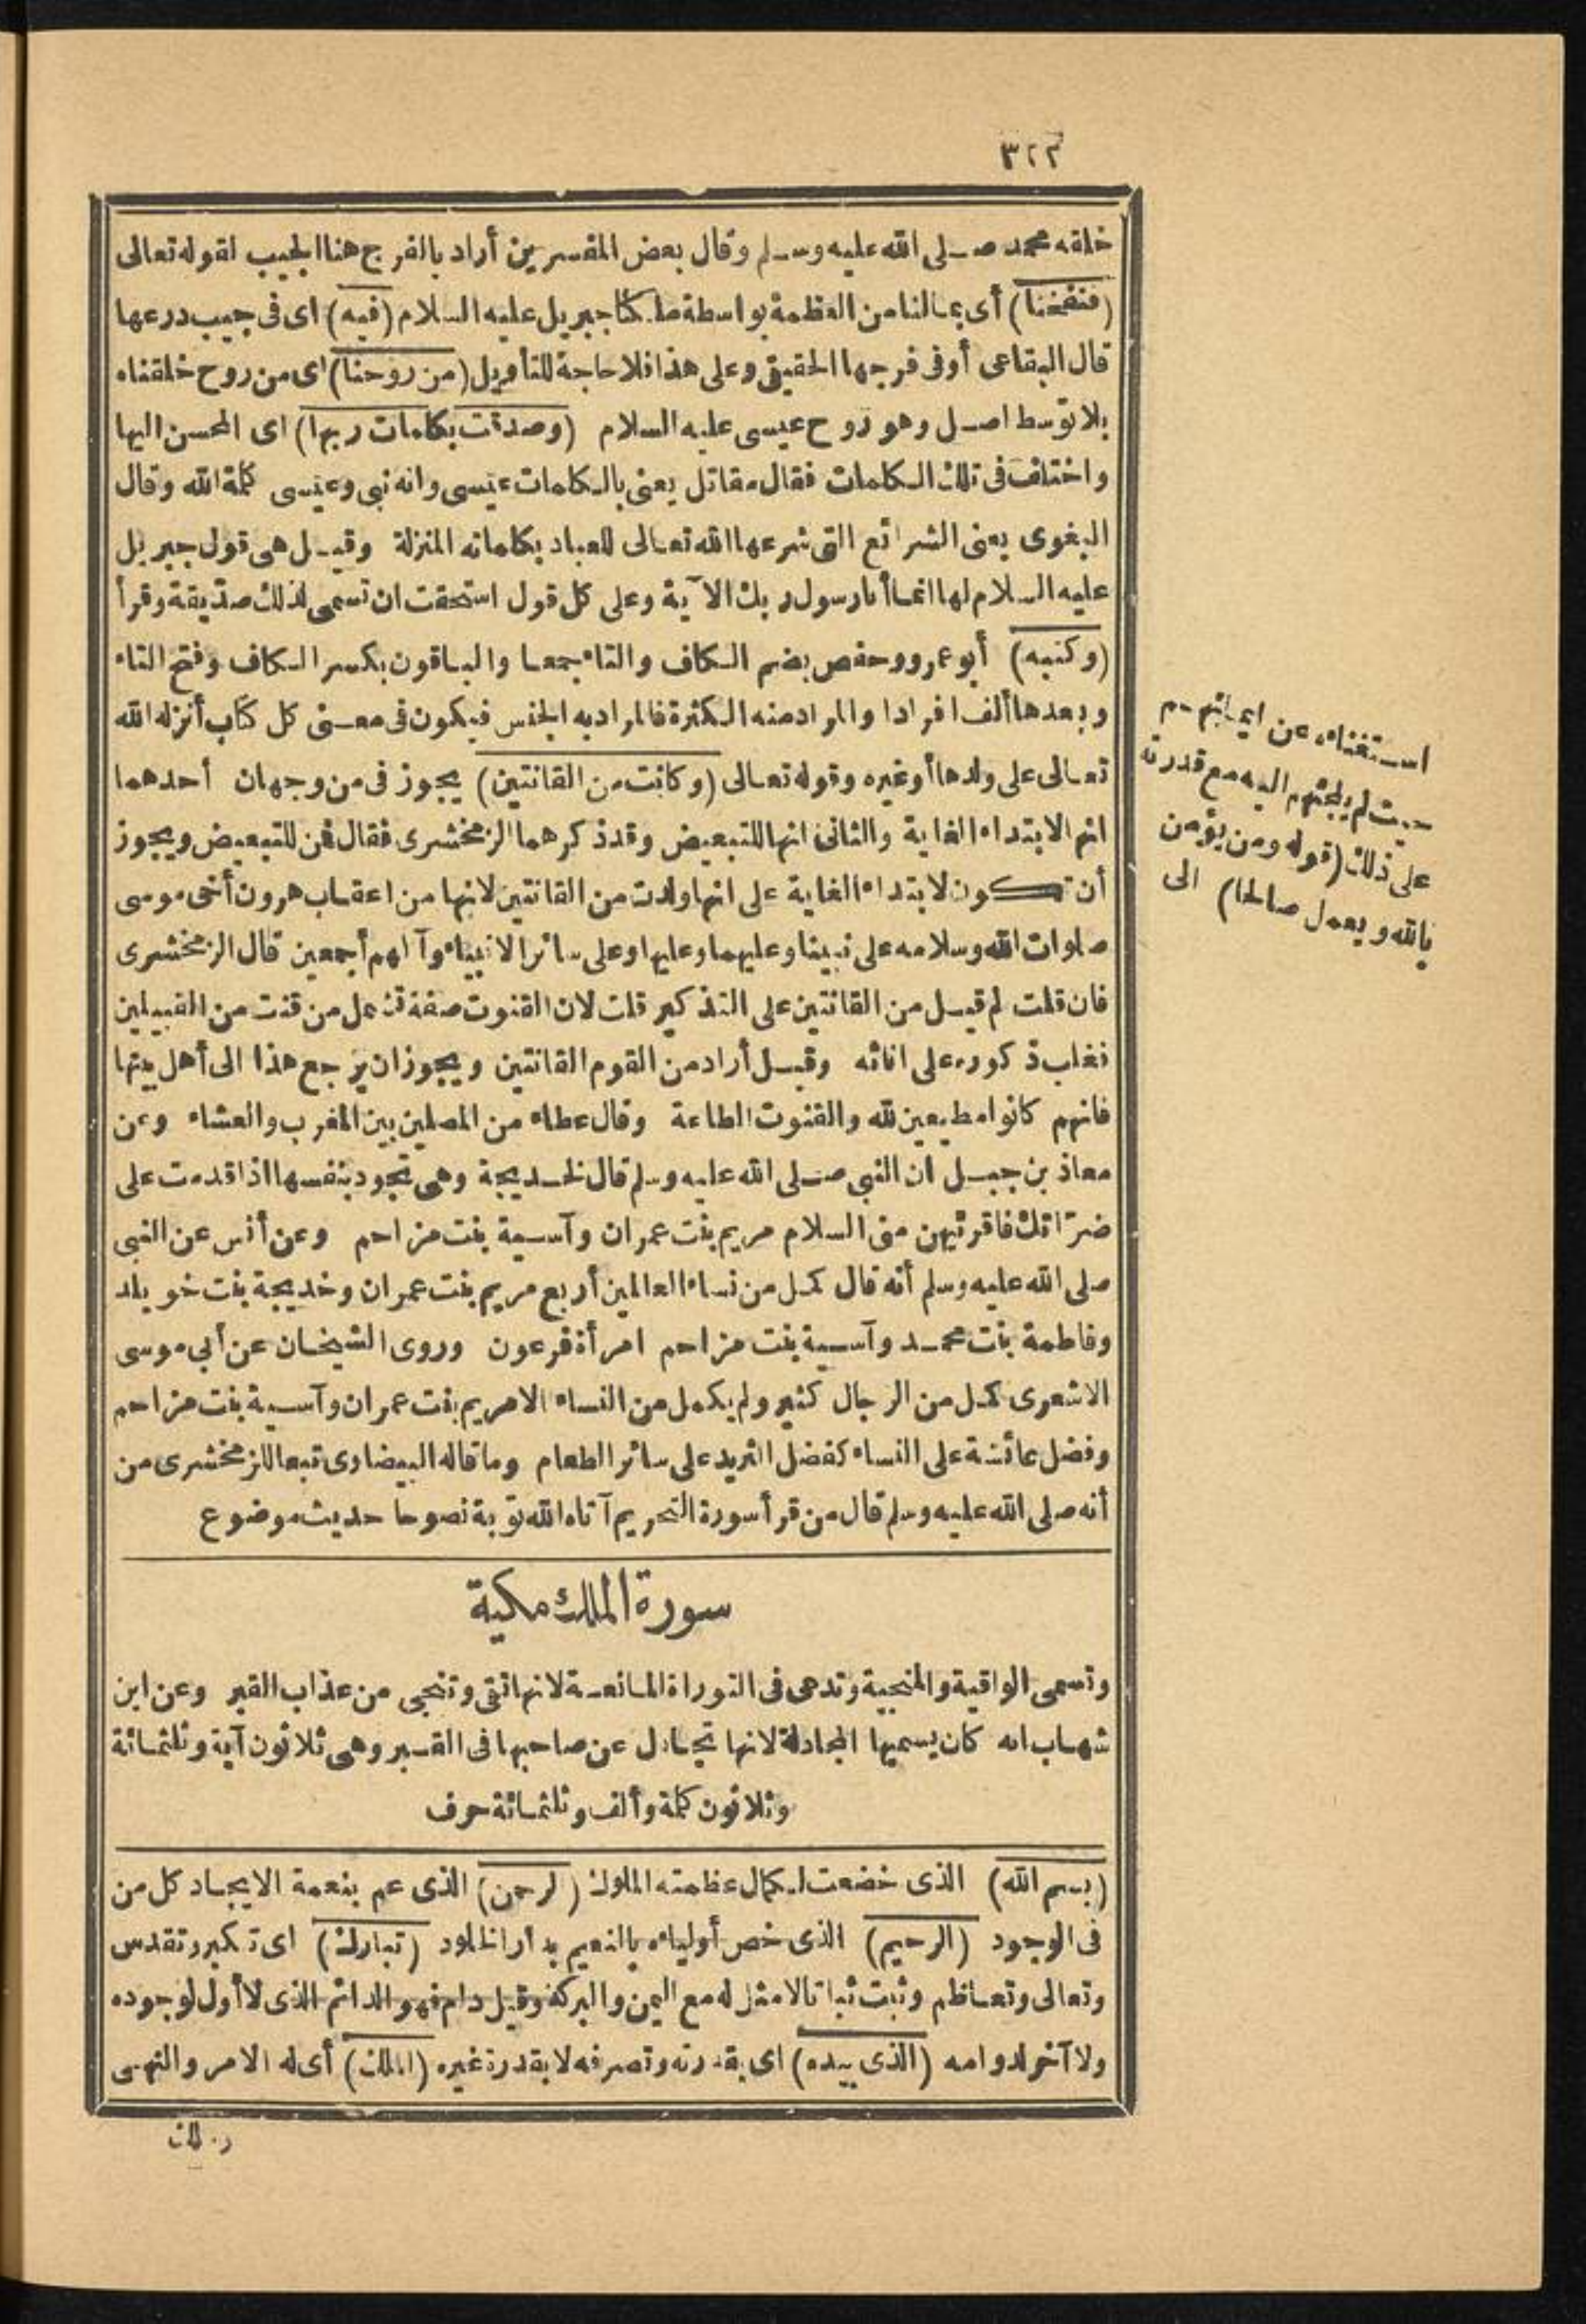 ٣٢٢
خلقه محمد صلى الله عليه وسلم وقال بعض المفسرين أراد بالفرج هنا الجيب لقوله تعالى
(فنفخنا) أى بمالنا من العظمة بواسطة ملكنا جبريل عليه السلام (فيه) اى فى جيب درعها
قال البقاعى أو فى فرجها الحقيقى وعلى هذا فلا حاجة للتأويل (من روحنا) اى من روح خلقناه
بلا توسط اصل وهو روح عيسى عليه السلام (وصدقت بكلمات ربها) اى المحسن اليها
واختلف فى تلك الكلمات فقال مقاتل يعنى بالكلمات عيسى وانه نبى وعيسى كلمة الله وقال
البغوى يعنى الشرائع التى شرعها الله تعالى للعباد بكلماته المنزلة وقيل هى قول جبريل
عليه السلام لها انما أنا رسول ربك الآية وعلى كل قول استحقت ان تسمى لذلك صدّيقة وقرأ
(وكتبه) أبو عمرو وحفص بضم الكاف والتاء جمعا والباقون بكسر الكاف وفتح التاء
وبعدها ألف افرادا والمراد منه الكثرة فالمراد به الجنس فيكون فى معنى كل كتاب أنزله الله
تعالى على ولدها أو غيره وقوله تعالى (وكانت من القانتين) يجوز فى من وجهان أحدهما
انها لابتداء الغاية والثانى انها للتبعيض وقد ذكرهما الزمخشرى فقال فمن للتبعيض ويجوز
أن تكون لابتداء الغاية على انها ولدت من القانتين لانها من اعقاب هرون أخى موسى
صلوات الله وسلامه على نبينا وعليهما وعليها وعلى سائر الانبياء وآلهم أجمعين قال الزمخشرى
فان قلت لم قيل من القانتين على التذكير قلت لان القنوت صفة تشمل من قنت من القبيلين
فغلب ذكوره على اناثه وقيل أراد من القوم القانتين ويجوز ان يرجع هذا الى أهل بيتها
فانهم كانوا مطيعين لله والقنوت الطاعة وقال عطاء من المصلين بين المغرب والعشاء وعن
معاذ بن جبل ان النبى صلى الله عليه وسلم قال لخديجة وهى تجود بنفسها اذا قدمت على
ضرّاتك فاقرئيهن منى السلام مريم بنت عمران وآسية بنت مزاحم وعن أنس عن النبى
صلى الله عليه وسلم أنه قال كمل من نساء العالمين أربع مريم بنت عمران وخديجة بنت خويلد
وفاطمة بنت محمد وآسية بنت مزاحم امرأة فرعون وروى الشيخان عن أبى موسى
الاشعرى كمل من الرجال كثير ولم يكمل من النساء الا مريم بنت عمران وآسية بنت مزاحم
وفضل عائشة على النساء كفضل الثريد على سائر الطعام وما قاله البيضاوى تبعا للزمخشرى من
أنه صلى الله عليه وسلم قال من قرأ سورة التحريم آتاه الله توبة نصوحا حديث موضوع
سورة الملك مكية
وتسمى الواقية والمنجية وتدعى فى التوراة المانعة لانها تقى وتنجى من عذاب القبر وعن ابن
شهاب انه كان يسميها المجادلة لانها تجادل عن صاحبها فى القبر وهى ثلاثون آية وثلثمائة
وثلاثون كلمة وألف وثلثمائة حرف
(بسم الله) الذى خضعت لكمال عظمته الملوك (الرحمن) الذى عم بنعمة الايجاد كل من
فى الوجود (الرحيم) الذى خص أولياءه بالنعيم بدار الخلود (تبارك) اى تكبر وتقدس
وتعالى وتعاظم وثبت ثباتا لا مثل له مع اليمن والبركة وقيل دام فهو الدائم الذى لا أول لوجوده
ولا آخر لدوامه (الذى بيده) اى بقدرته وتصرفه لا بقدرة غيره (الملك) أى له الامر والنهى
استغناءه عن ايمانهم
حيث لم يلجئهم اليه مع قدرته
على ذلك (قوله ومن يؤمن
بالله ويعمل صالحا) الى